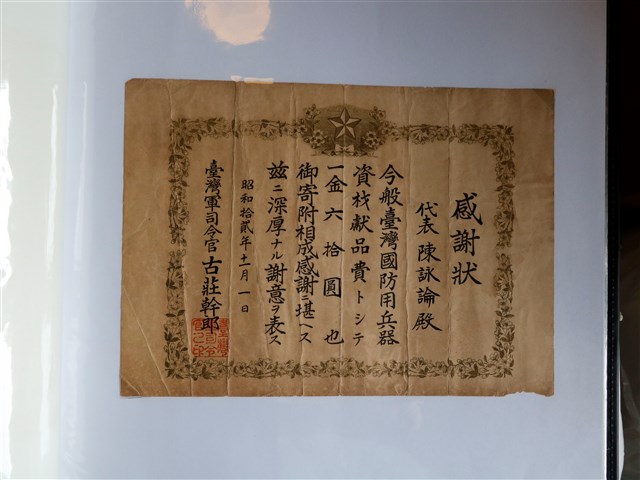 感謝狀
代表 陳詠論殿
今般臺灣國防用兵器
資材獻品費トシテ
一金六拾圓也
御寄附相成感謝ニ堪ヘス
茲ニ深厚ナル謝意ヲ表ス
昭和拾貳年十一月一日
臺灣軍司令官 古莊幹郎